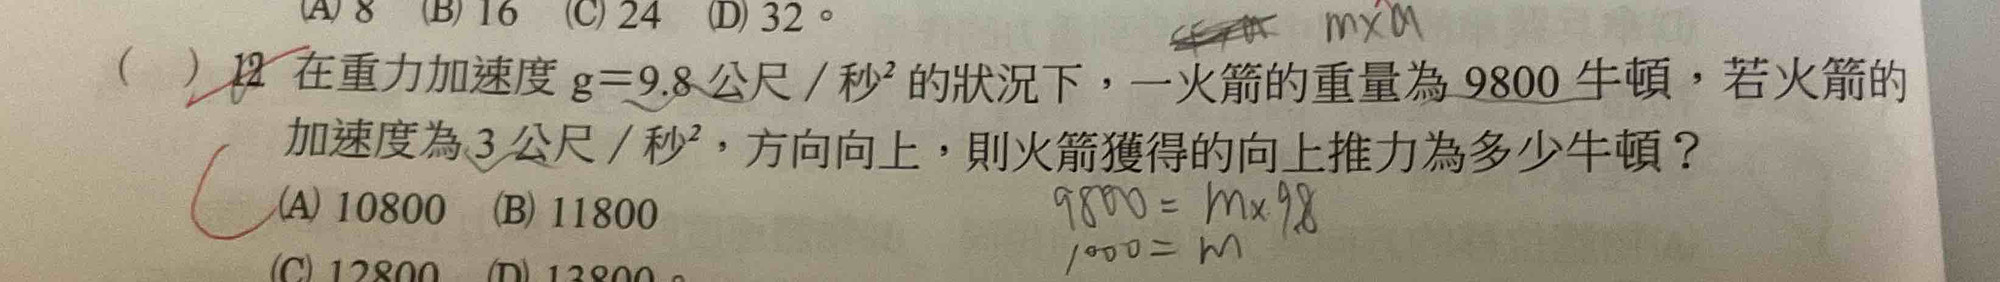 (A) 8 (B) 16 (C) 24 (D) 32。
m×a
( ) 12 在重力加速度 g＝9.8 公尺／秒² 的狀況下，一火箭的重量為 9800 牛頓，若火箭的
加速度為 3 公尺／秒²，方向向上，則火箭獲得的向上推力為多少牛頓？
C
(A) 10800 (B) 11800
9800 = m×98
1000 = m
(C) 12800 (D) 13800。